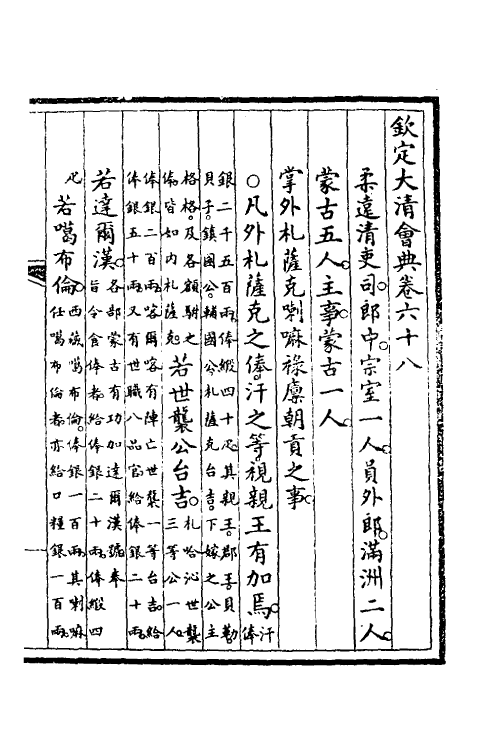 欽定大清會典卷六十八
柔遠清吏司。郎中。宗室一人。員外郎。滿洲二人。
蒙古五人。主事。蒙古一人。
掌外札薩克喇嘛祿廩朝貢之事。
○凡外札薩克之俸。汗之等。視親王有加焉。汗俸
銀二千五百兩。俸緞四十疋。其親王。郡王。貝勒
貝子。鎮國公。輔國公。札薩克台吉。下嫁之公主
格格。及各額駙之
俸。皆如内札薩克。
若世襲公台吉。札哈沁世襲
三等公一人。
俸銀二百兩。喀爾喀有陣亡世襲一等台吉。給
俸銀五十兩。又有世職八品官給俸銀二十兩。
若達爾漢。各部蒙古有功加達爾漢號。奉
旨令食俸者。給俸銀二十兩。俸緞四
疋
若噶布倫。西藏噶布倫。俸銀一百兩。其喇嘛
任噶布倫者。亦給口糧銀一百兩。